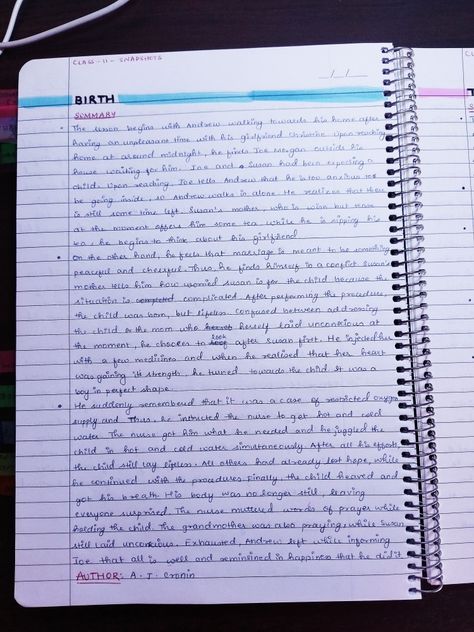 CLASS - 11 - SNAPSHOTS
/ /
BIRTH
SUMMARY
• The lesson begins with Andrew walking towards his home after
having an unpleasant time with his girlfriend Christine. Upon reaching
home at around midnight, he finds Joe Morgan outside his
house waiting for him. Joe and Susan had been expecting a
child. Upon reading, Joe tells Andrew that he is too anxious to
be going inside, so Andrew walks in alone. He realizes that there
is still some time left. Susan's mother, who is wish but
at the moment offers him some tea. While he is sipping his
tea, he begins to think about his girlfriend
• On the other hand, he feels that marriage is meant to be something
peaceful and cheerful. Thus, he finds himself in a conflict. Susan's
mother tells him how worried Susan is for the child because the
situation is complicated. After performing the procedure,
the child was born, but lifeless. Confused between addressing
the child or the mom who herself laid unconcious at
the moment, he chooses to look after Susan first. He injected her
with a few medicines and when he realised that her heart
was gaining it strength, he turned towards the child. It was a
boy in perfect shape.
• He suddenly remembered that it was a case of restricted oxygen
supply and Thus, he instructed the nurse to get hot and cold
water. The nurse got him what he needed and he juggled the
child in hot and cold water simultaneously. After all his efforts,
the child still lay lifeless. All others had already lost hope, while
he continued with the procedures. Finally, the child heaved and
got his breath. His body was no longer still, leaving
everyone surprised. The nurse muttered words of prayer while
holding the child. The grandmother was also praying, while Susan
still laid unconcious. Exhausted, Andrew left while informing
Joe that all is well and in happiness that he did it
AUTHOR: A. J. Cronin